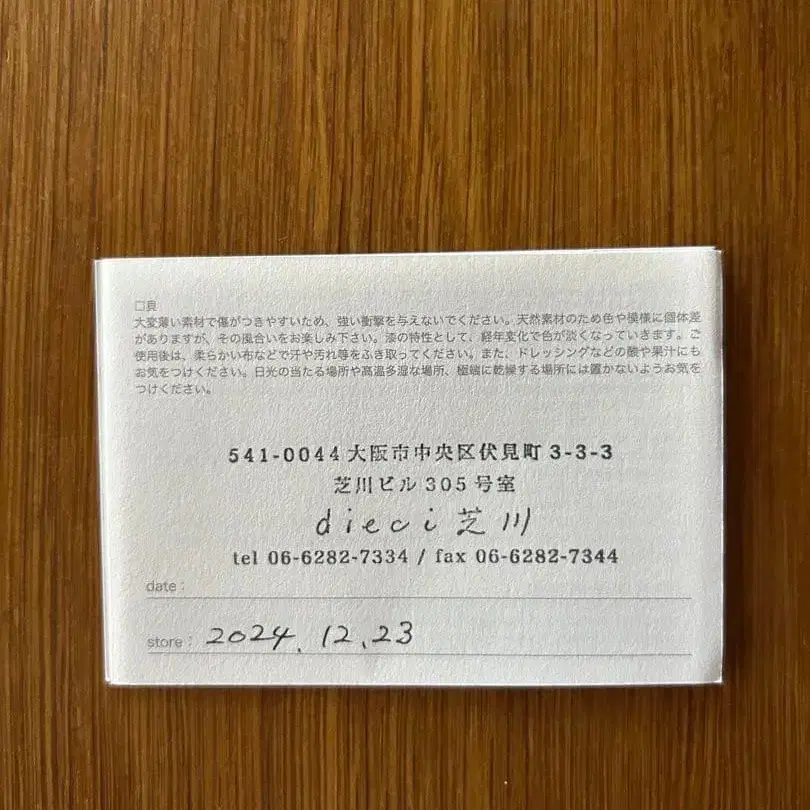 □貝
大変薄い素材で傷がつきやすいため、強い衝撃を与えないでください。天然素材のため色や模様に個体差
がありますが、その風合いをお楽しみ下さい。漆の特性として、経年変化で色が淡くなっていきます。ご
使用後は、柔らかい布などで汗や汚れ等をふき取ってください。また、ドレッシングなどの酸や果汁にも
お気をつけください。日光の当たる場所や高温多湿な場所、極端に乾燥する場所には置かないようお気を
つけください。
541-0044 大阪市中央区伏見町 3-3-3
芝川ビル 305 号室
dieci芝川
tel 06-6282-7334 / fax 06-6282-7344
date :
store : 2024. 12. 23